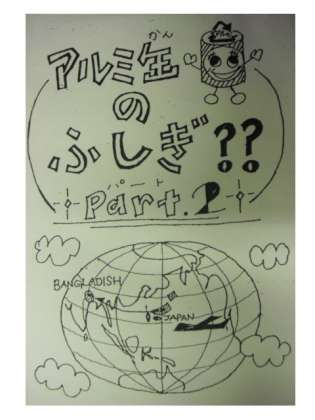 かん
アルミ缶
の
ふしぎ??
パート
Part.2
BANGLADISH
JAPAN